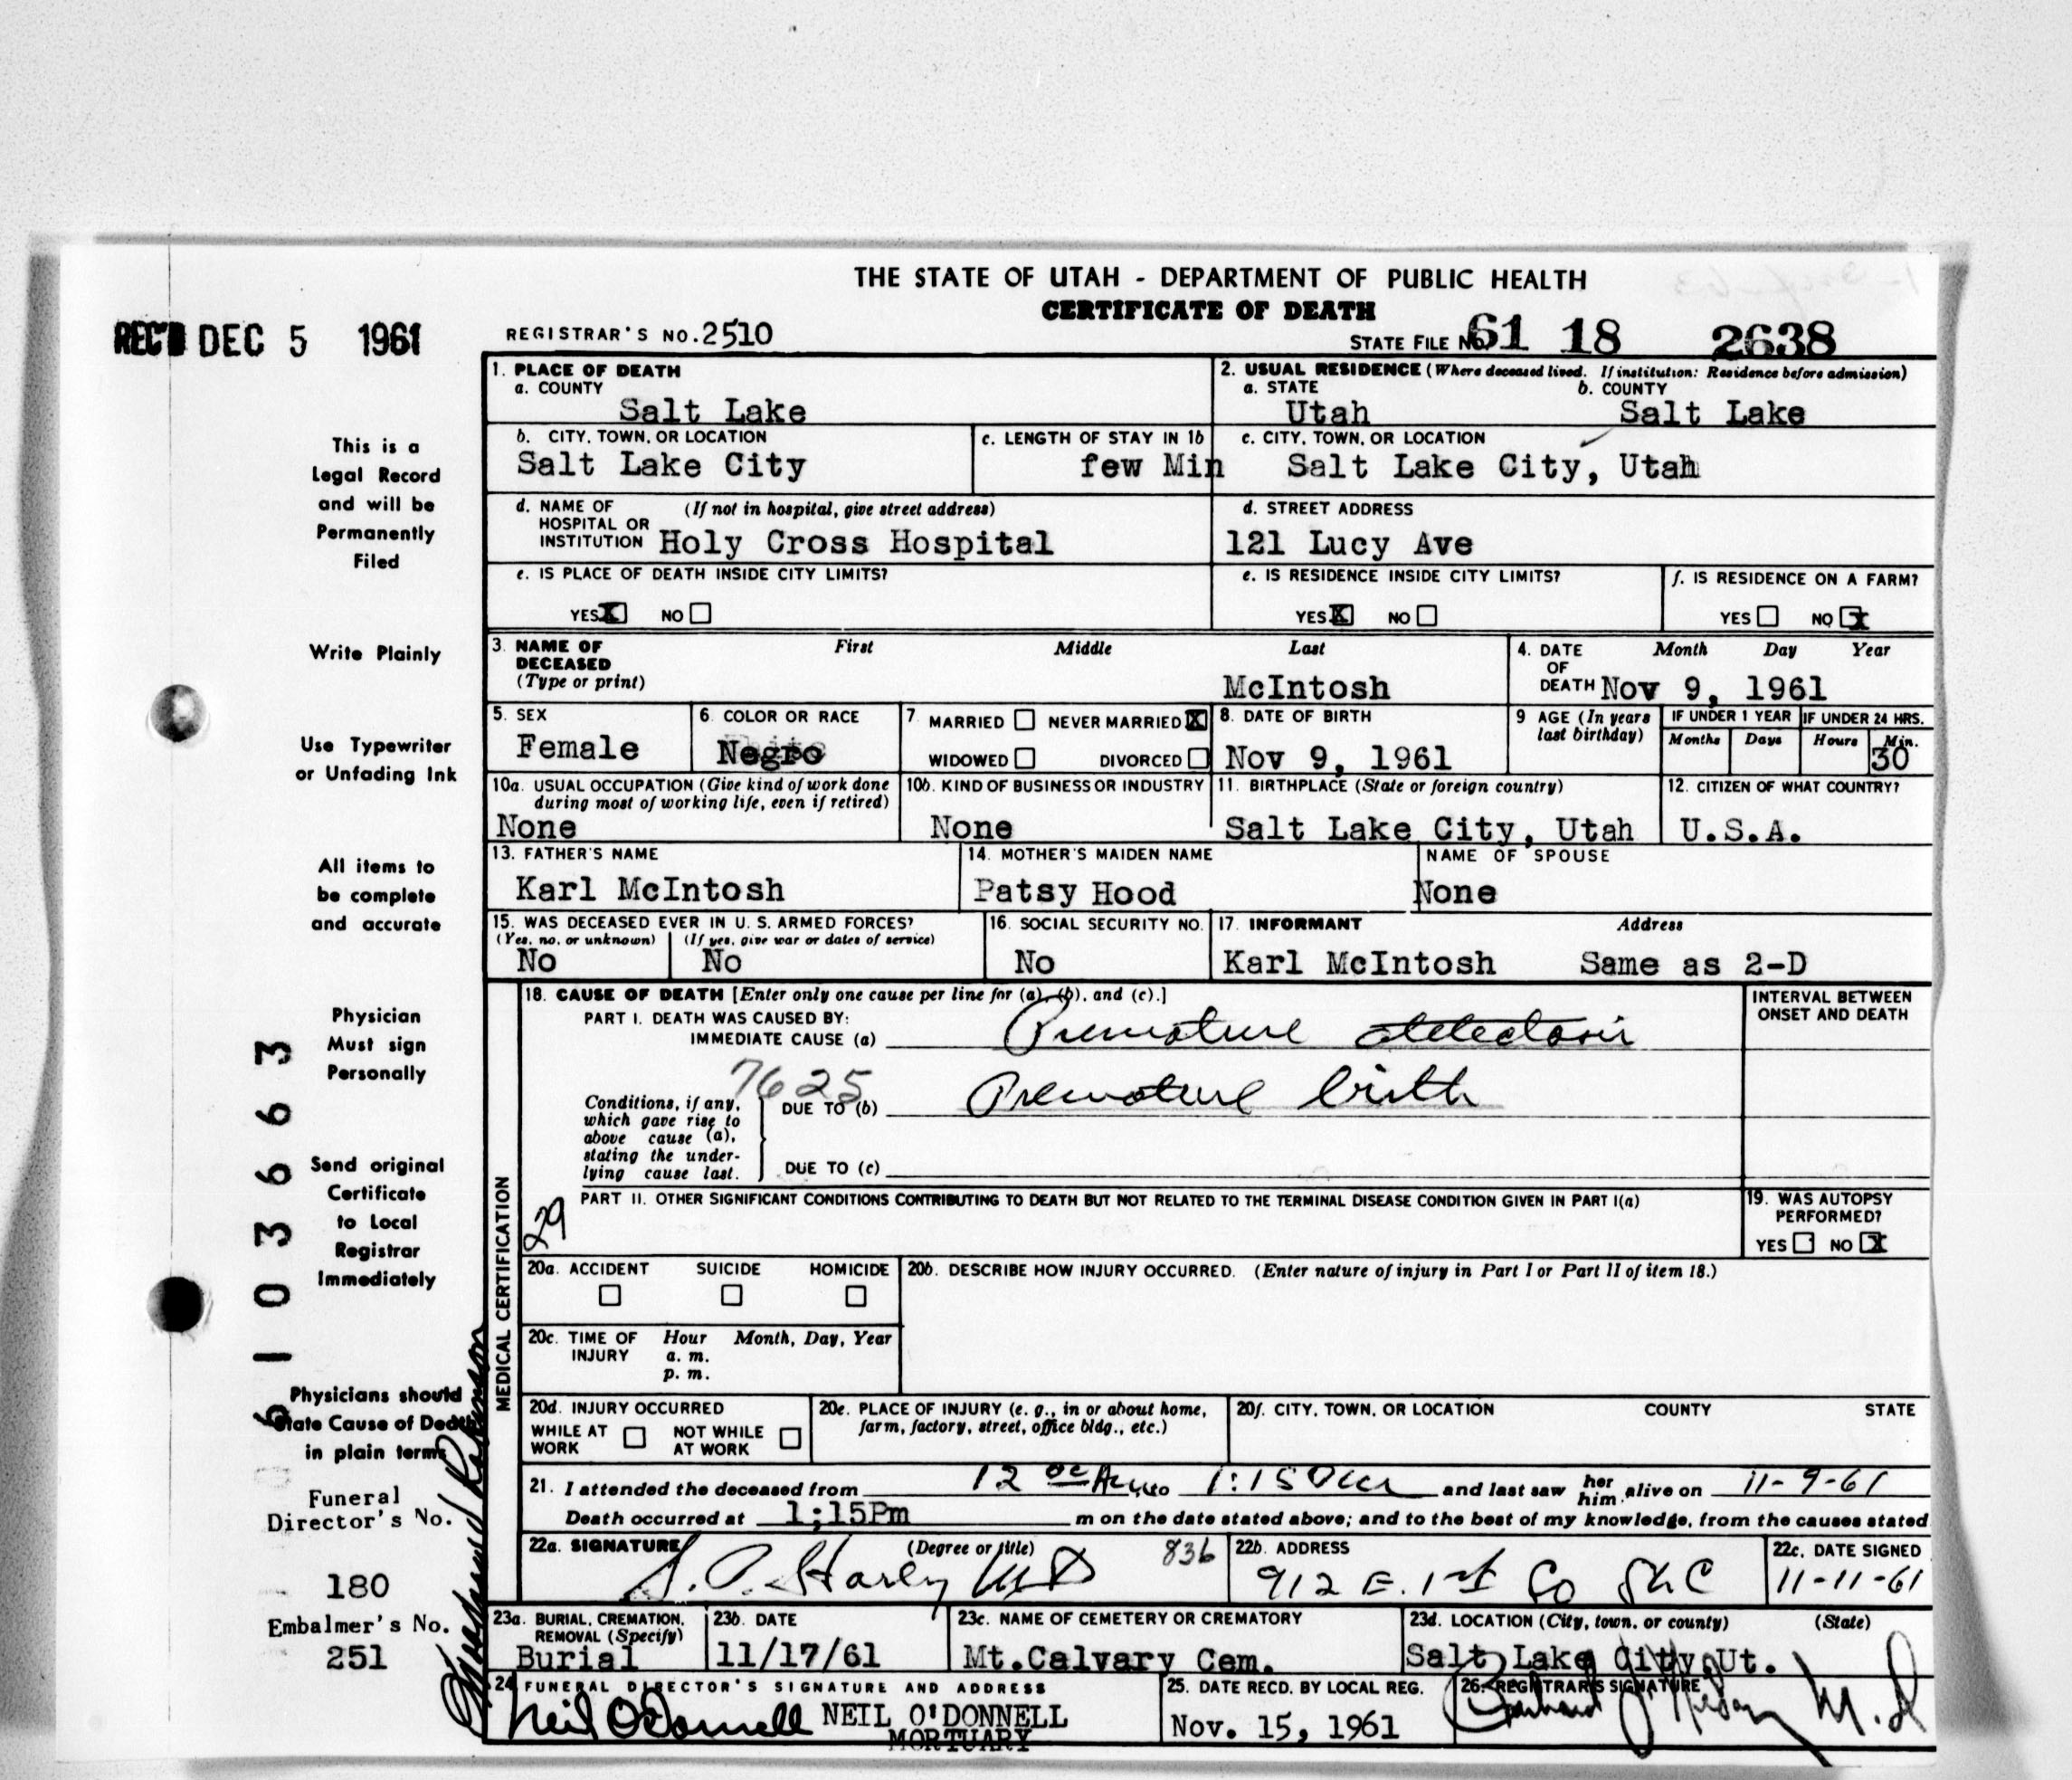 THE STATE OF UTAH - DEPARTMENT OF PUBLIC HEALTH
CERTIFICATE OF DEATH
REC'D DEC 5 1961
REGISTRAR'S NO. 2510
STATE FILE NO. 61 18 2638
1. PLACE OF DEATH
a. COUNTY
Salt Lake
2. USUAL RESIDENCE (Where deceased lived. If institution: Residence before admission)
a. STATE b. COUNTY
Utah Salt Lake
b. CITY, TOWN, OR LOCATION
Salt Lake City
c. LENGTH OF STAY IN 1b
few Min
c. CITY, TOWN, OR LOCATION
Salt Lake City, Utah
d. NAME OF HOSPITAL OR INSTITUTION (If not in hospital, give street address)
Holy Cross Hospital
d. STREET ADDRESS
121 Lucy Ave
e. IS PLACE OF DEATH INSIDE CITY LIMITS?
YES X NO
e. IS RESIDENCE INSIDE CITY LIMITS?
YES X NO
f. IS RESIDENCE ON A FARM?
YES NO X
3. NAME OF DECEASED (Type or print)
First Middle Last
McIntosh
4. DATE OF DEATH Month Day Year
Nov 9, 1961
5. SEX
Female
6. COLOR OR RACE
Negro
7. MARRIED NEVER MARRIED X
WIDOWED DIVORCED
8. DATE OF BIRTH
Nov 9, 1961
9 AGE (In years last birthday)
IF UNDER 1 YEAR IF UNDER 24 HRS.
Months Days Hours Min.
30
10a. USUAL OCCUPATION (Give kind of work done during most of working life, even if retired)
None
10b. KIND OF BUSINESS OR INDUSTRY
None
11. BIRTHPLACE (State or foreign country)
Salt Lake City, Utah
12. CITIZEN OF WHAT COUNTRY?
U.S.A.
13. FATHER'S NAME
Karl McIntosh
14. MOTHER'S MAIDEN NAME
Patsy Hood
NAME OF SPOUSE
None
15. WAS DECEASED EVER IN U. S. ARMED FORCES?
(Yes, no, or unknown) (If yes, give war or dates of service)
No No
16. SOCIAL SECURITY NO.
No
17. INFORMANT Address
Karl McIntosh Same as 2-D
MEDICAL CERTIFICATION
18. CAUSE OF DEATH [Enter only one cause per line for (a), (b), and (c).]
INTERVAL BETWEEN ONSET AND DEATH
PART I. DEATH WAS CAUSED BY:
IMMEDIATE CAUSE (a) Premature atelectasis
7625
Conditions, if any, which gave rise to above cause (a), stating the underlying cause last.
DUE TO (b) Premature birth
DUE TO (c)
29
PART II. OTHER SIGNIFICANT CONDITIONS CONTRIBUTING TO DEATH BUT NOT RELATED TO THE TERMINAL DISEASE CONDITION GIVEN IN PART I(a)
19. WAS AUTOPSY PERFORMED?
YES NO X
20a. ACCIDENT SUICIDE HOMICIDE
20b. DESCRIBE HOW INJURY OCCURRED. (Enter nature of injury in Part I or Part II of item 18.)
20c. TIME OF INJURY Hour Month, Day, Year
a. m.
p. m.
20d. INJURY OCCURRED
WHILE AT WORK NOT WHILE AT WORK
20e. PLACE OF INJURY (e. g., in or about home, farm, factory, street, office bldg., etc.)
20f. CITY, TOWN, OR LOCATION COUNTY STATE
21. I attended the deceased from 12 to 1:15 and last saw her him alive on 11-9-61
Death occurred at 1;15Pm m on the date stated above; and to the best of my knowledge, from the causes stated
22a. SIGNATURE (Degree or title)
836
22b. ADDRESS
912 E. 1st So SLC
22c. DATE SIGNED
11-11-61
23a. BURIAL, CREMATION, REMOVAL (Specify)
Burial
23b. DATE
11/17/61
23c. NAME OF CEMETERY OR CREMATORY
Mt.Calvary Cem.
23d. LOCATION (City, town, or county) (State)
Salt Lake City, Ut.
24 FUNERAL DIRECTOR'S SIGNATURE AND ADDRESS
Neil O'Donnell NEIL O'DONNELL
MORTUARY
25. DATE RECD. BY LOCAL REG.
Nov. 15, 1961
26. REGISTRAR'S SIGNATURE
M.D
This is a
Legal Record
and will be
Permanently
Filed
Write Plainly
Use Typewriter
or Unfading Ink
All items to
be complete
and accurate
Physician
Must sign
Personally
Send original
Certificate
to Local
Registrar
Immediately
Physicians should
State Cause of Death
in plain terms
Funeral
Director's No.
180
Embalmer's No.
251
6103663